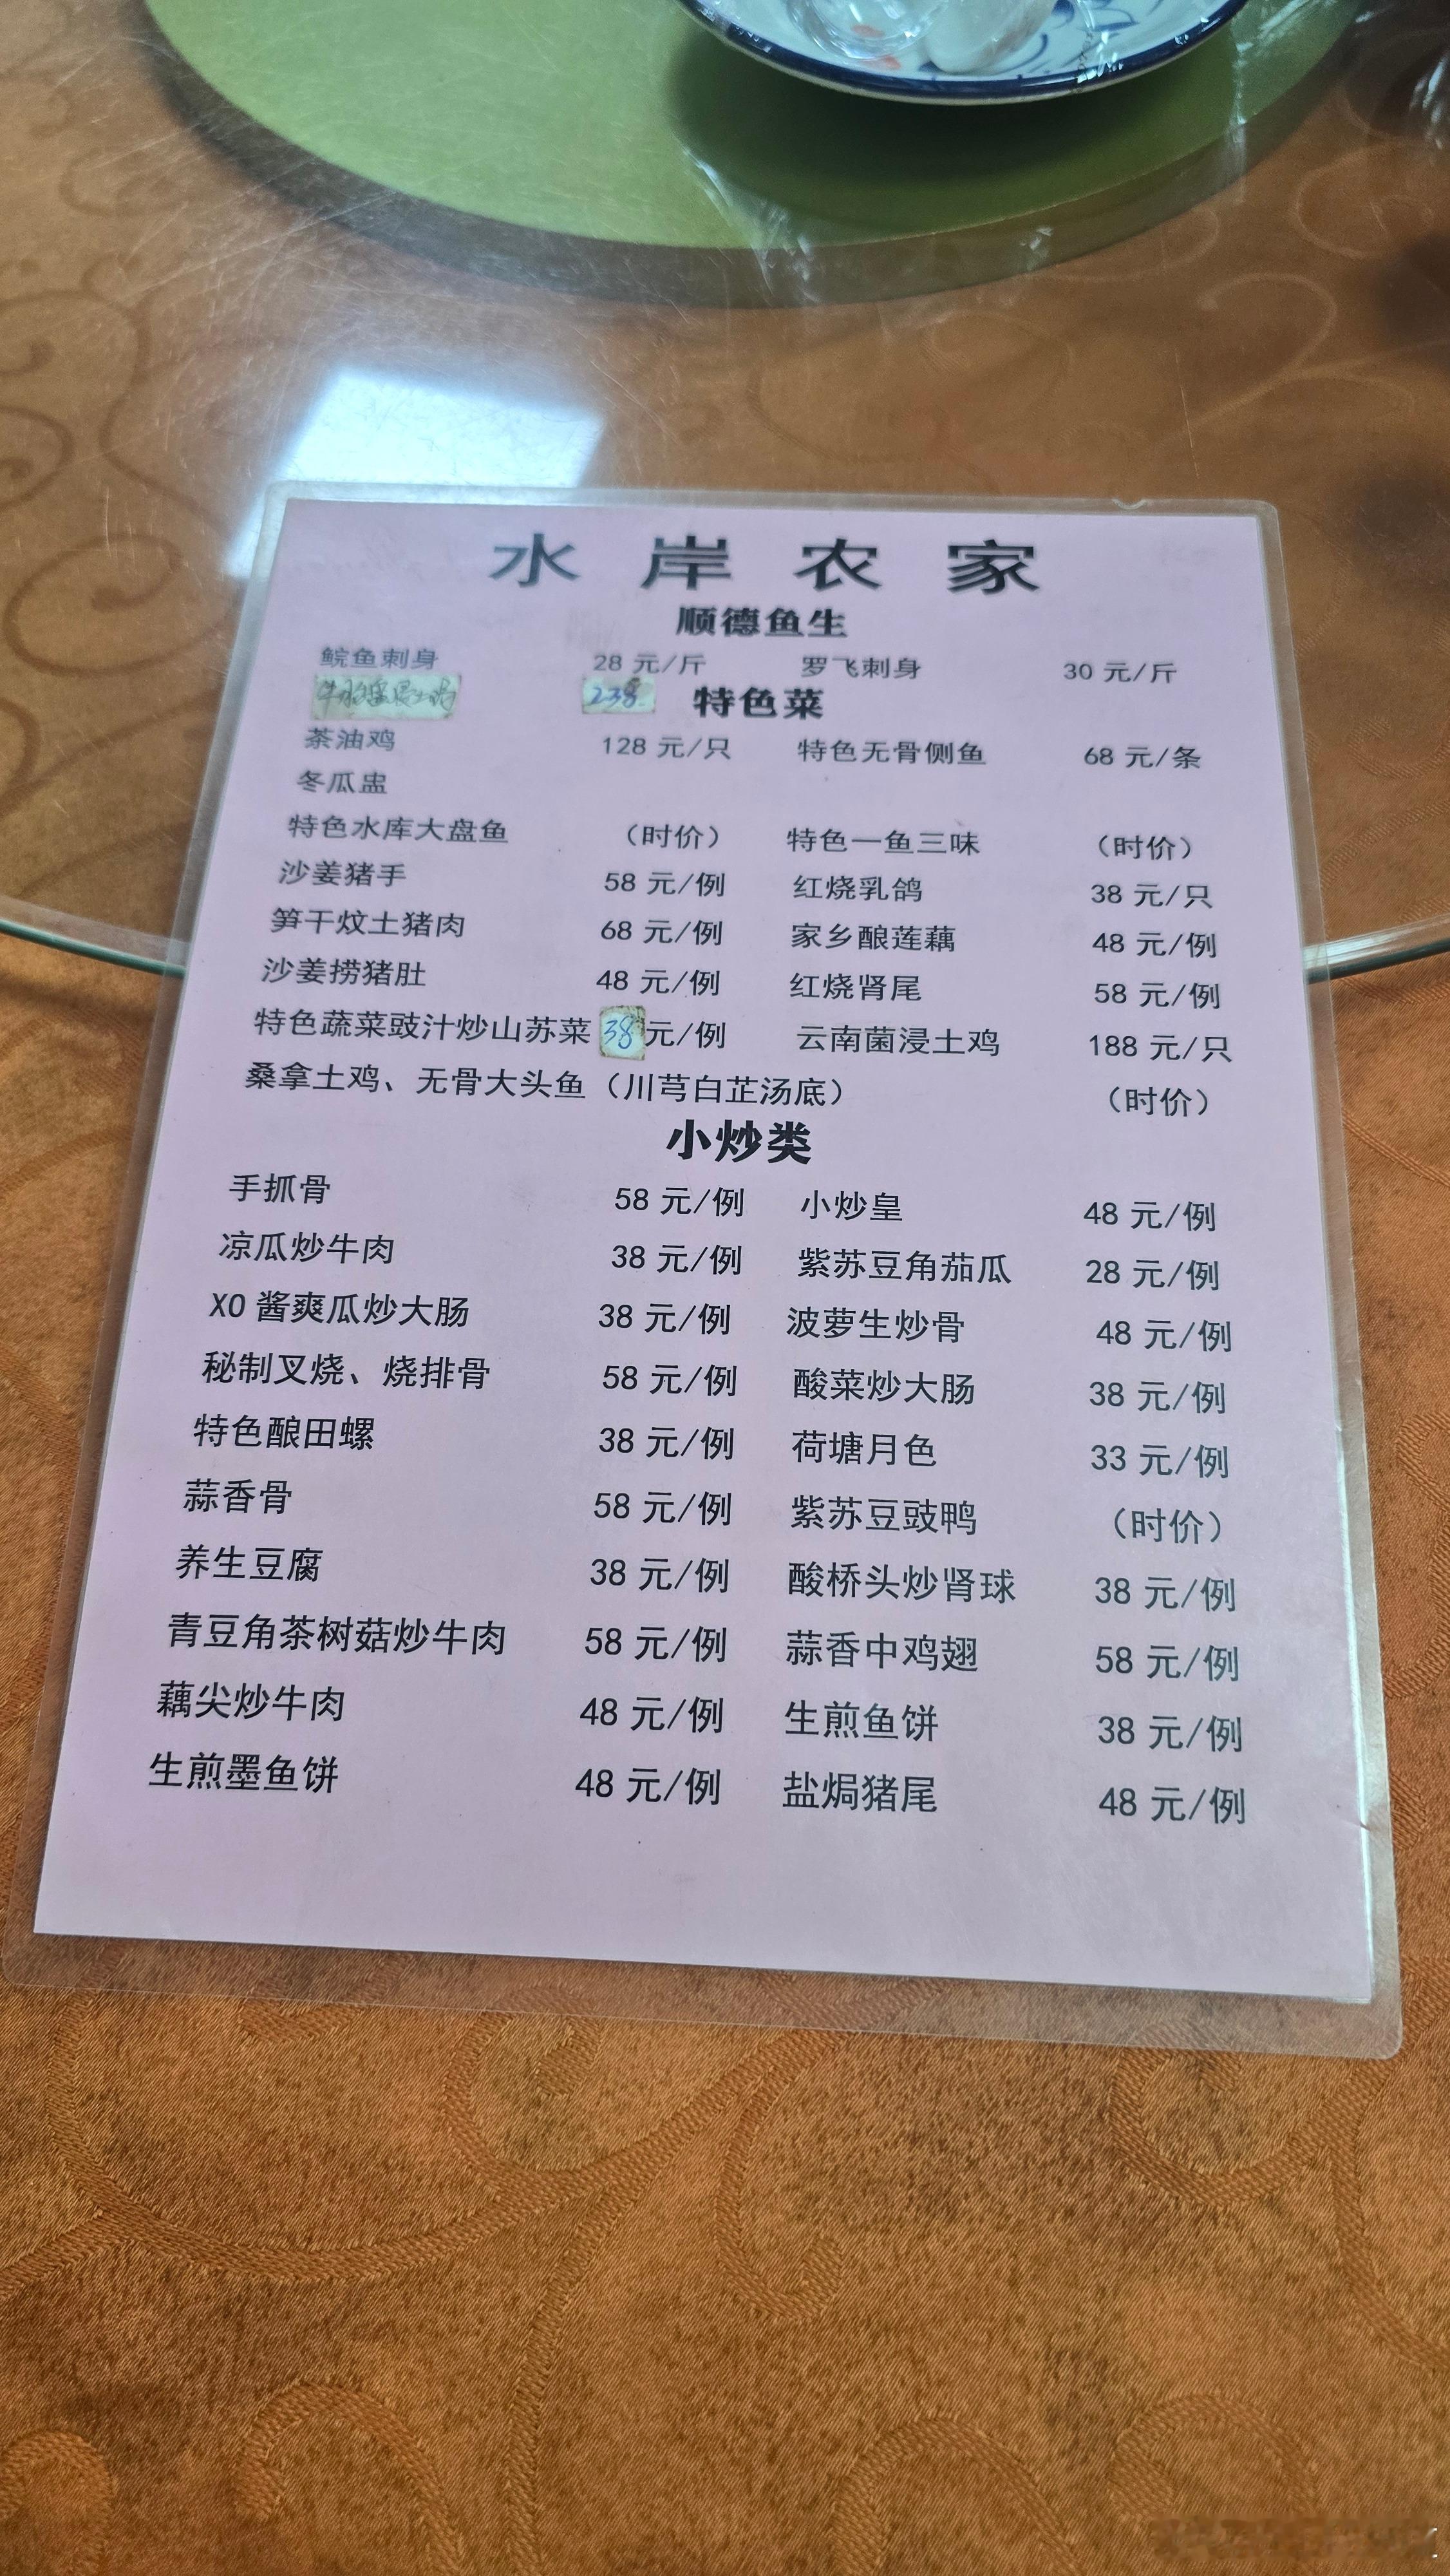 水岸农家
顺德鱼生
鲩鱼刺身 28元/斤 罗飞刺身 30元/斤
238
特色菜
茶油鸡 128元/只 特色无骨侧鱼 68元/条
冬瓜盅
特色水库大盘鱼 （时价） 特色一鱼三味 （时价）
沙姜猪手 58元/例 红烧乳鸽 38元/只
笋干炆土猪肉 68元/例 家乡酿莲藕 48元/例
沙姜捞猪肚 48元/例 红烧肾尾 58元/例
特色蔬菜豉汁炒山苏菜 38元/例 云南菌浸土鸡 188元/只
桑拿土鸡、无骨大头鱼（川芎白芷汤底） （时价）
小炒类
手抓骨 58元/例 小炒皇 48元/例
凉瓜炒牛肉 38元/例 紫苏豆角茄瓜 28元/例
XO酱爽瓜炒大肠 38元/例 波萝生炒骨 48元/例
秘制叉烧、烧排骨 58元/例 酸菜炒大肠 38元/例
特色酿田螺 38元/例 荷塘月色 33元/例
蒜香骨 58元/例 紫苏豆豉鸭 （时价）
养生豆腐 38元/例 酸桥头炒肾球 38元/例
青豆角茶树菇炒牛肉 58元/例 蒜香中鸡翅 58元/例
藕尖炒牛肉 48元/例 生煎鱼饼 38元/例
生煎墨鱼饼 48元/例 盐焗猪尾 48元/例